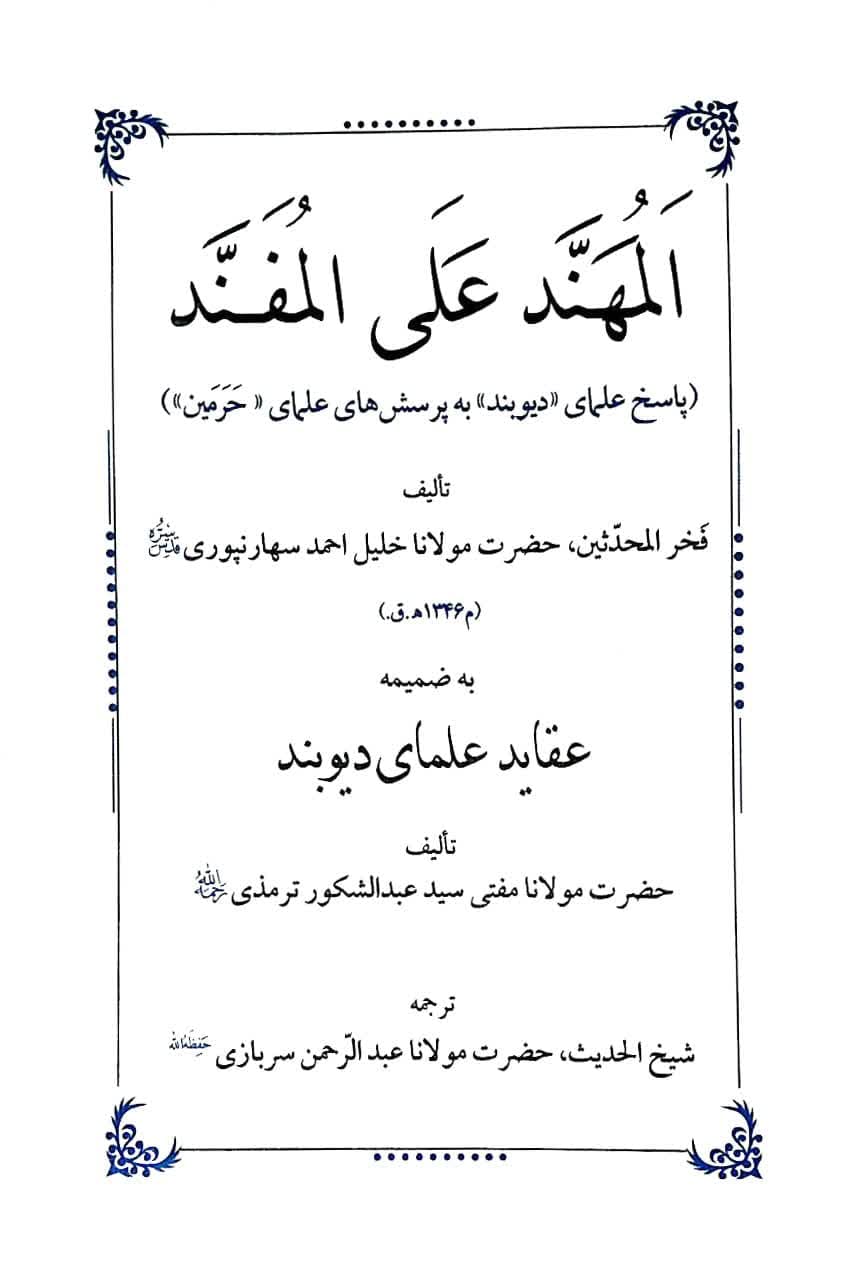 اَلمُهَنَّد عَلَی المُفَنَّد
(پاسخ علمای «دیوبند» به پرسش‌های علمای « حَرَمَین»)
تألیف
فَخر المحدّثین، حضرت مولانا خلیل احمد سهارنپوری قُدِّسَ سِرُّه
(م۱۳۴۶ه‍.ق.)
به ضمیمه
عقاید علمای دیوبند
تألیف
حضرت مولانا مفتی سید عبدالشکور ترمذی رَحِمَهُ الله
ترجمه
شیخ الحدیث، حضرت مولانا عبد الرّحمن سربازی حَفِظَهُ الله